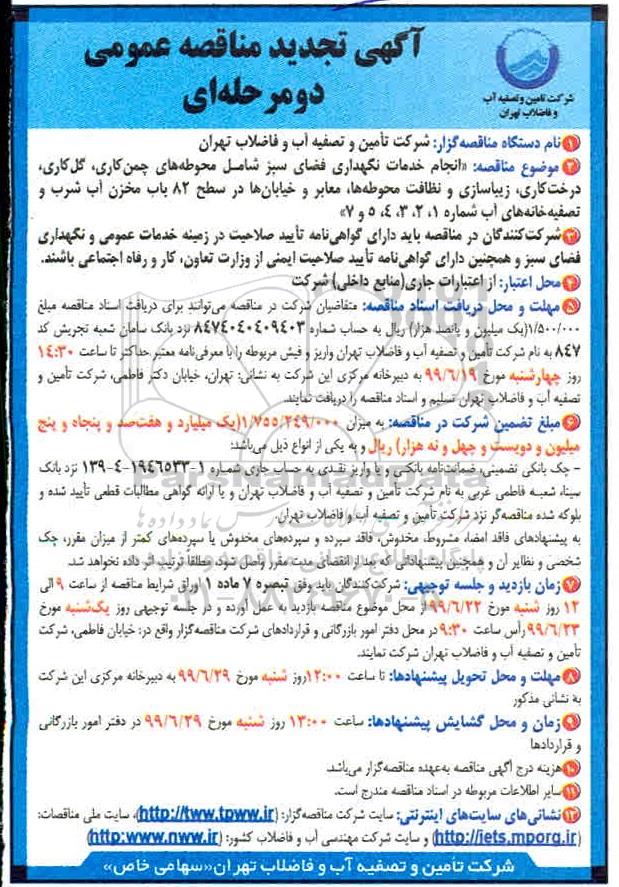 آگهی تجدید مناقصه عمومی
دومرحله‌ای
شرکت تامین و تصفیه آب
و فاضلاب تهران
۱ نام دستگاه مناقصه‌گزار: شرکت تأمین و تصفیه آب و فاضلاب تهران
۲ موضوع مناقصه: «انجام خدمات نگهداری فضای سبز شامل محوطه‌های چمن‌کاری، گل‌کاری،
درخت‌کاری، زیباسازی و نظافت محوطه‌ها، معابر و خیابان‌ها در سطح ۸۲ باب مخزن آب شرب و
تصفیه‌خانه‌های آب شماره ۱، ۲، ۳، ۴، ۵ و ۷»
۳ شرکت‌کنندگان در مناقصه باید دارای گواهی‌نامه تأیید صلاحیت در زمینه خدمات عمومی و نگهداری
فضای سبز و همچنین دارای گواهی‌نامه تأیید صلاحیت ایمنی از وزارت تعاون، کار و رفاه اجتماعی باشند.
۴ محل اعتبار: از اعتبارات جاری(منابع داخلی) شرکت
۵ مهلت و محل دریافت اسناد مناقصه: متقاضیان شرکت در مناقصه می‌توانند برای دریافت اسناد مناقصه مبلغ
۱/۵۰۰/۰۰۰(یک میلیون و پانصد هزار) ریال به حساب شماره ۸۴۷۴۰۴۰۴۰۹۴۰۳ نزد بانک سامان شعبه تجریش کد
۸۴۷ به نام شرکت تأمین و تصفیه آب و فاضلاب تهران واریز و فیش مربوطه را با معرفی‌نامه معتبر حداکثر تا ساعت ۱۴:۳۰
روز چهارشنبه مورخ ۹۹/۶/۱۹ به دبیرخانه مرکزی این شرکت به نشانی: تهران، خیابان دکتر فاطمی، شرکت تأمین و
تصفیه آب و فاضلاب تهران تسلیم و اسناد مناقصه را دریافت نمایند.
۶ مبلغ تضمین شرکت در مناقصه: به میزان ۱/۷۵۵/۲۴۹/۰۰۰(یک میلیارد و هفت‌صد و پنجاه و پنج
میلیون و دویست و چهل و نه هزار) ریال و به یکی از انواع ذیل می‌باشد:
- چک بانکی تضمینی، ضمانت‌نامه بانکی و یا واریز نقدی به حساب جاری شماره ۱-۱۹۴۶۵۳۳-۴-۱۳۹ نزد بانک
سینا، شعبه فاطمی غربی به نام شرکت تأمین و تصفیه آب و فاضلاب تهران و یا ارائه گواهی مطالبات قطعی تأیید شده و
بلوکه شده مناقصه‌گر نزد شرکت تأمین و تصفیه آب و فاضلاب تهران.
به پیشنهادهای فاقد امضا، مشروط، مخدوش، فاقد سپرده و سپرده‌های مخدوش یا سپرده‌های کمتر از میزان مقرر، چک
شخصی و نظایر آن و همچنین پیشنهاداتی که بعد از انقضای مدت مقرر واصل شود، مطلقاً ترتیب اثر داده نخواهد شد.
۷ زمان بازدید و جلسه توجیهی: شرکت‌کنندگان باید وفق تبصره ۷ ماده ۱ اوراق شرایط مناقصه از ساعت ۹ الی
۱۲ روز شنبه مورخ ۹۹/۶/۲۲ از محل موضوع مناقصه بازدید به عمل آورده و در جلسه توجیهی روز یک‌شنبه مورخ
۹۹/۶/۲۳ رأس ساعت ۹:۳۰ در محل دفتر امور بازرگانی و قراردادهای شرکت مناقصه‌گزار واقع در: خیابان فاطمی، شرکت
تأمین و تصفیه آب و فاضلاب تهران شرکت نمایند.
۸ مهلت و محل تحویل پیشنهادها: تا ساعت ۱۲:۰۰ روز شنبه مورخ ۹۹/۶/۲۹ به دبیرخانه مرکزی این شرکت
به نشانی مذکور
۹ زمان و محل گشایش پیشنهادها: ساعت ۱۳:۰۰ روز شنبه مورخ ۹۹/۶/۲۹ در دفتر امور بازرگانی
و قراردادها
۱۰ هزینه درج آگهی مناقصه به‌عهده مناقصه‌گزار می‌باشد.
۱۱ سایر اطلاعات مربوطه در اسناد مناقصه مندرج است.
۱۲ نشانی‌های سایت‌های اینترنتی: سایت شرکت مناقصه‌گزار: (http://tww.tpww.ir)، سایت ملی مناقصات:
(http://iets.mporg.ir) و سایت شرکت مهندسی آب و فاضلاب کشور: (http:www.nww.ir)
شرکت تأمین و تصفیه آب و فاضلاب تهران«سهامی خاص»
ParsNamadData